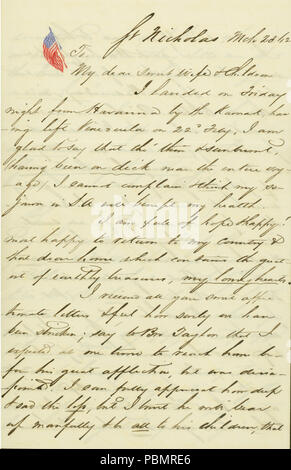 St Nicholas Mch 23/62
To
My dear sweet Wife & Children
I landed on Friday
night from Havanna by the Karnak, hav
ing left Venezuela on 22d Feby, I am
glad to say that tho' thin & sunburnt,
having been on deck near the entire voy
age, I cannot complain & think my so
journ in SA will benefit my health.
I am full of hope & happy.
most happy to return to my Country &
that dear home which contains the great
est of earthly treasures, my loving hearts.
I received all your some affec
tionate letters & feel how sorely we have
been stricken, say to Bro Taylor that I
expected at one time to reach home be
for his great affliction but was disap
pointed. I can fully appreciate how deep
& sad the loss, but I trust he will bear
up manfully & be all to his children, that
alamy
PBMRE6